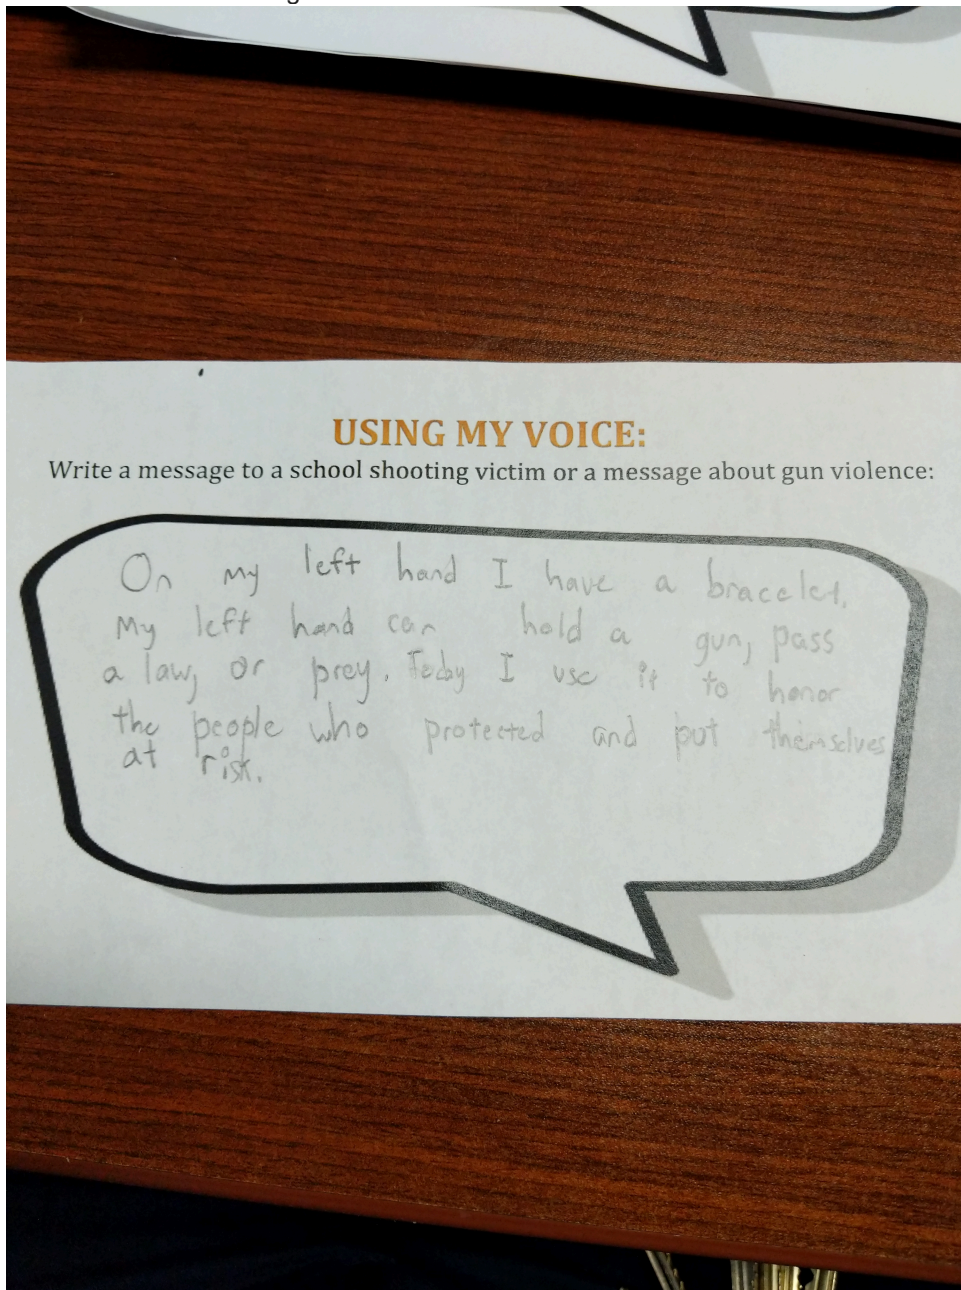 USING MY VOICE:
Write a message to a school shooting victim or a message about gun violence:
On my left hand I have a bracelet.
My left hand can hold a gun, pass
a law, or prey. Today I use it to honor
the people who protected and put themselves
at risk.